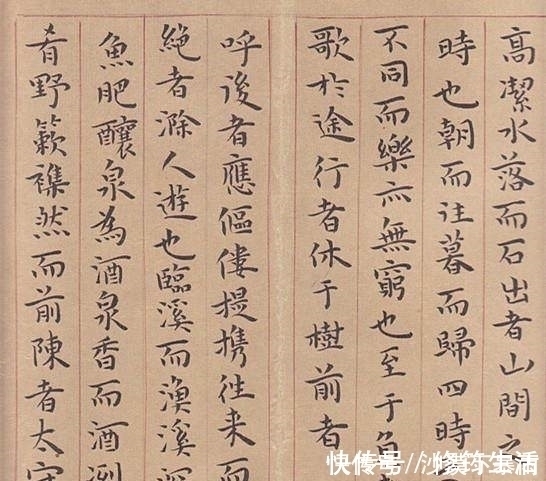 高潔水落而石出者山間之
時也朝而往暮而歸四時
不同而樂亦無窮也至于負
歌於途行者休于樹前者
呼後者應傴僂提携往来而
絶者滁人遊也臨溪而漁溪深
魚肥釀泉為酒泉香而酒洌
肴野蔌襍然而前陳者太守
快传号/生活